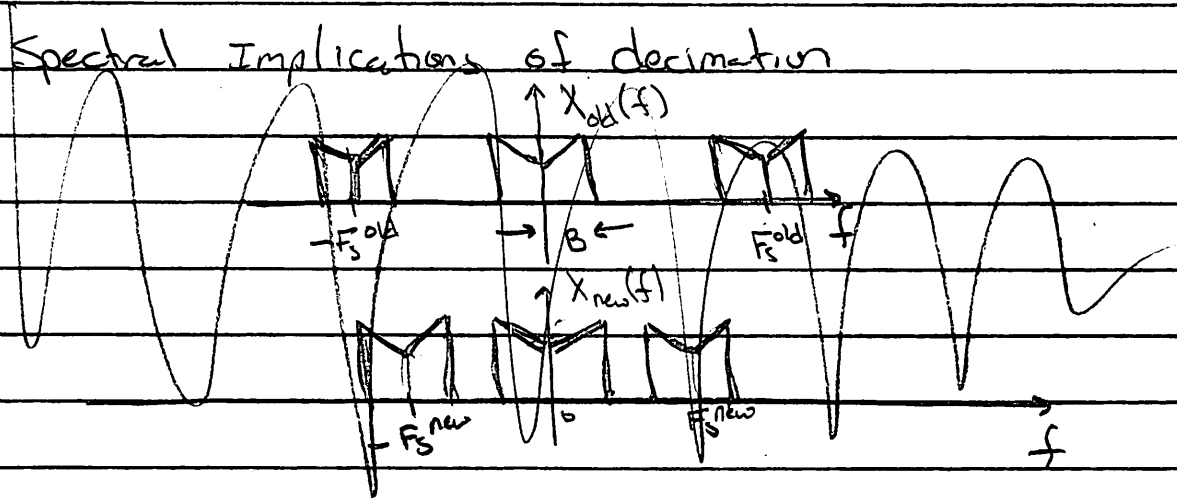 Spectral Implications of decimation
X_old(f)
-F_s^old B F_s^old f
X_new(f)
-F_s^new 0 F_s^new
f